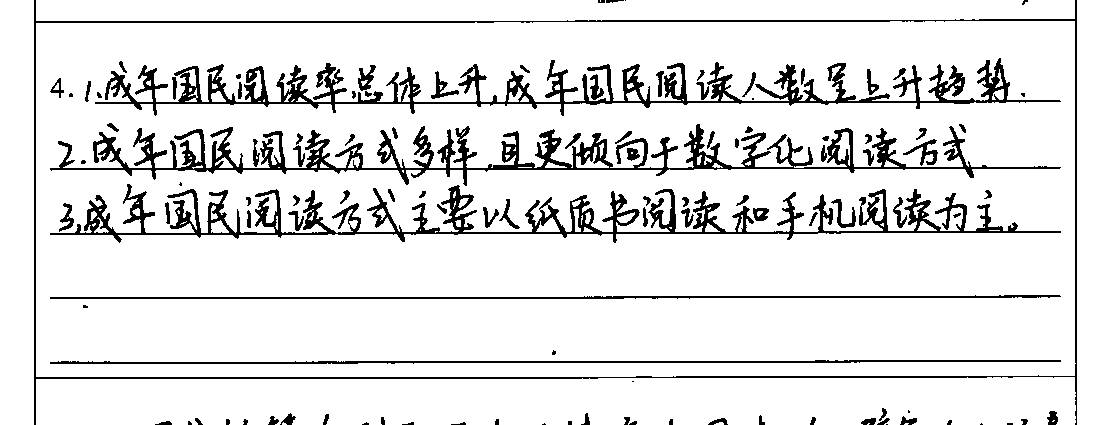 4. 1.成年国民阅读率总体上升,成年国民阅读人数呈上升趋势.
2.成年国民阅读方式多样,且更倾向于数字化阅读方式.
3.成年国民阅读方式主要以纸质书阅读和手机阅读为主。